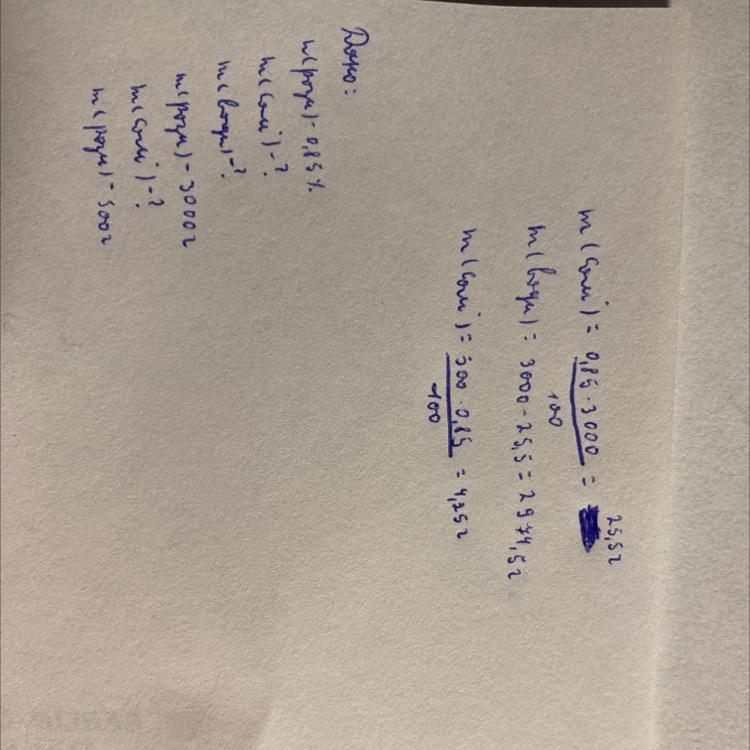 Дано:
m(розч)-0,85%
m(солі)-?
m(води)-?
m(розч)-3000г
m(солі)-?
m(розч)=500г
m(солі)= 0,85·3000 / 100 = 25,5г
m(води)= 3000-25,5=2974,5г
m(солі)= 500·0,85 / 100 = 4,25г